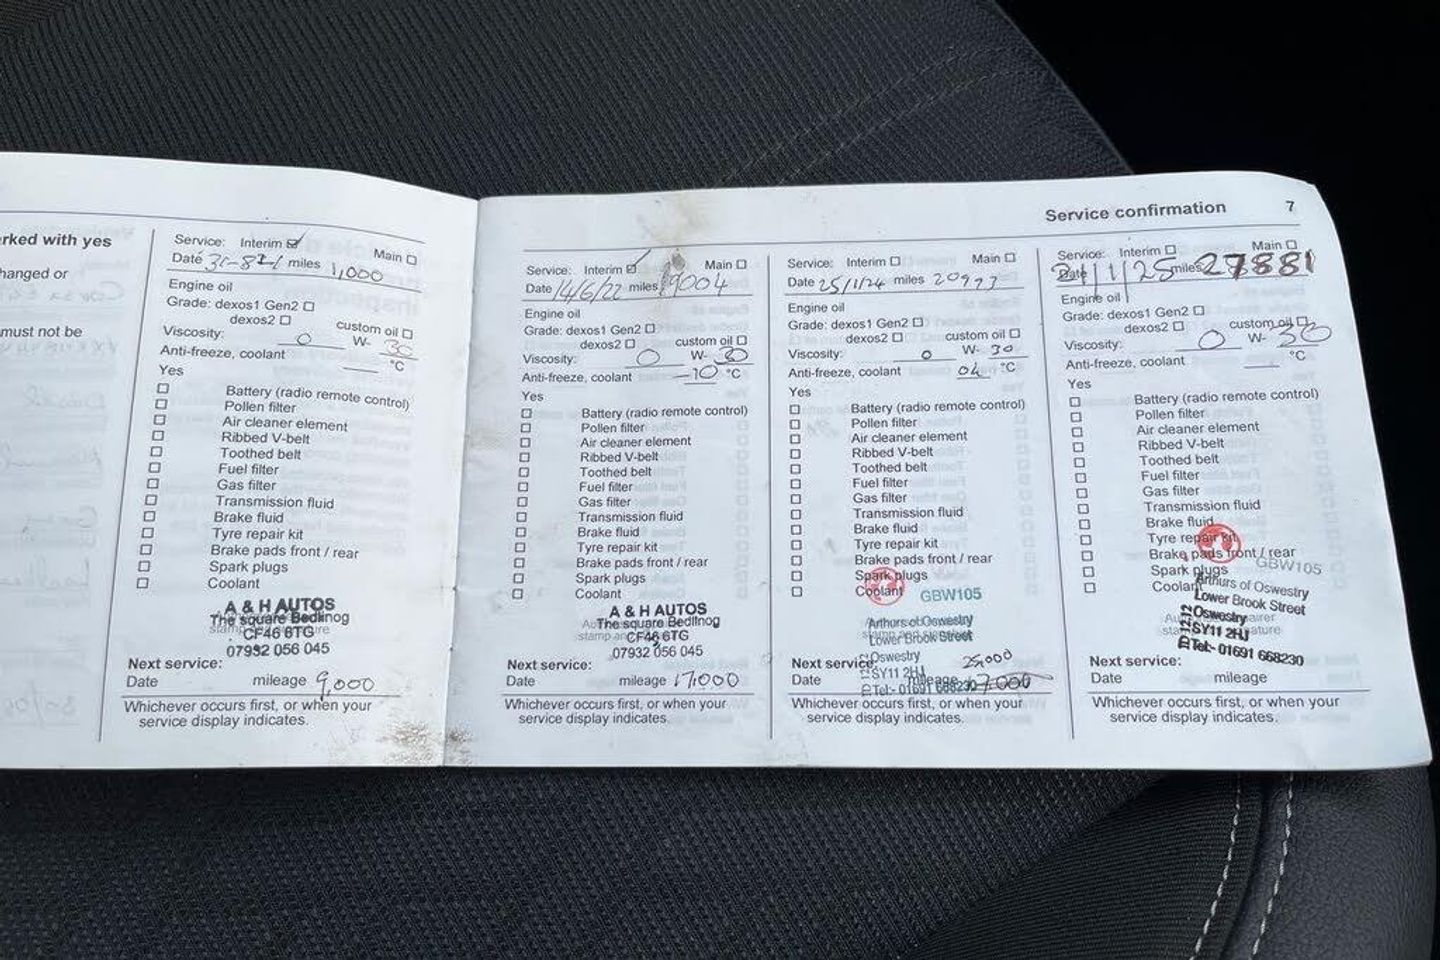 Service confirmation 7
rked with yes
hanged or
must not be
Service: Interim Main
Date miles 1,000
Engine oil
Grade: dexos1 Gen2
dexos2 custom oil
Viscosity: 0 W- 30
Anti-freeze, coolant °C
Yes
Battery (radio remote control)
Pollen filter
Air cleaner element
Ribbed V-belt
Toothed belt
Fuel filter
Gas filter
Transmission fluid
Brake fluid
Tyre repair kit
Brake pads front / rear
Spark plugs
Coolant
A & H AUTOS
The square Bedlinog
CF46 6TG
07932 056 045
Next service:
Date mileage 9,000
Whichever occurs first, or when your
service display indicates.
Service: Interim Main
Date 14/6/22 miles 9004
Engine oil
Grade: dexos1 Gen2
dexos2 custom oil
Viscosity: 0 W- 30
Anti-freeze, coolant -10 °C
Yes
Battery (radio remote control)
Pollen filter
Air cleaner element
Ribbed V-belt
Toothed belt
Fuel filter
Gas filter
Transmission fluid
Brake fluid
Tyre repair kit
Brake pads front / rear
Spark plugs
Coolant
A & H AUTOS
The square Bedlinog
CF46 6TG
07932 056 045
Next service:
Date mileage 17,000
Whichever occurs first, or when your
service display indicates.
Service: Interim Main
Date 25/1/24 miles 20993
Engine oil
Grade: dexos1 Gen2
dexos2 custom oil
Viscosity: 0 W- 30
Anti-freeze, coolant 04 °C
Yes
Battery (radio remote control)
Pollen filter
Air cleaner element
Ribbed V-belt
Toothed belt
Fuel filter
Gas filter
Transmission fluid
Brake fluid
Tyre repair kit
Brake pads front / rear
Spark plugs
Coolant
GBW105
Arthurs of Oswestry
Lower Brook Street
Oswestry
SY11 2HJ
Tel:- 01691 668230
Next service: 25,000
Date mileage 7,000
Whichever occurs first, or when your
service display indicates.
Service: Interim Main
Date 21/1/25 miles 27881
Engine oil
Grade: dexos1 Gen2
dexos2 custom oil
Viscosity: 0 W- 30
Anti-freeze, coolant °C
Yes
Battery (radio remote control)
Pollen filter
Air cleaner element
Ribbed V-belt
Toothed belt
Fuel filter
Gas filter
Transmission fluid
Brake fluid
Tyre repair kit
Brake pads front / rear
Spark plugs
Coolant
GBW105
Arthurs of Oswestry
Lower Brook Street
Oswestry
SY11 2HJ
Tel:- 01691 668230
Next service:
Date mileage
Whichever occurs first, or when your
service display indicates.